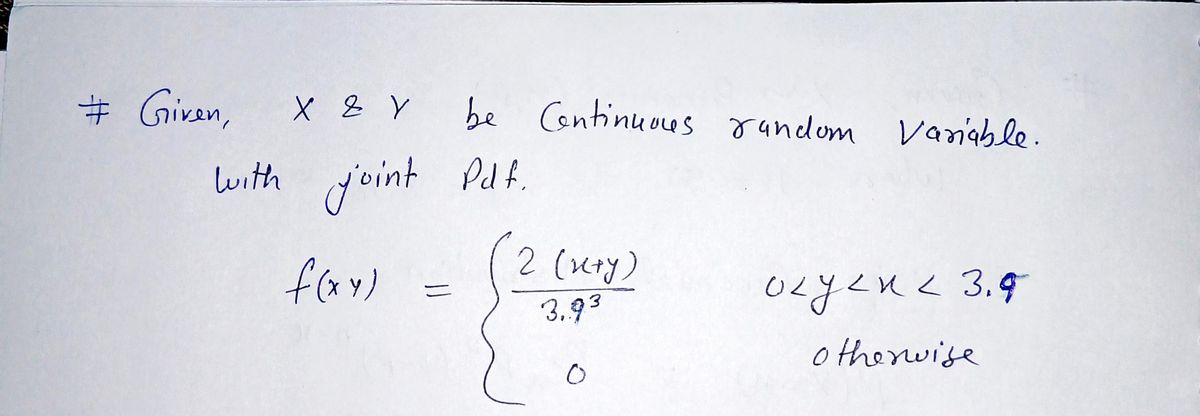 # Given, X & Y be Continuous random Variable.
with joint Pdf.
f(x y) = { 2 (x+y) / 3.9³ 0<y<x< 3.9
0 otherwise